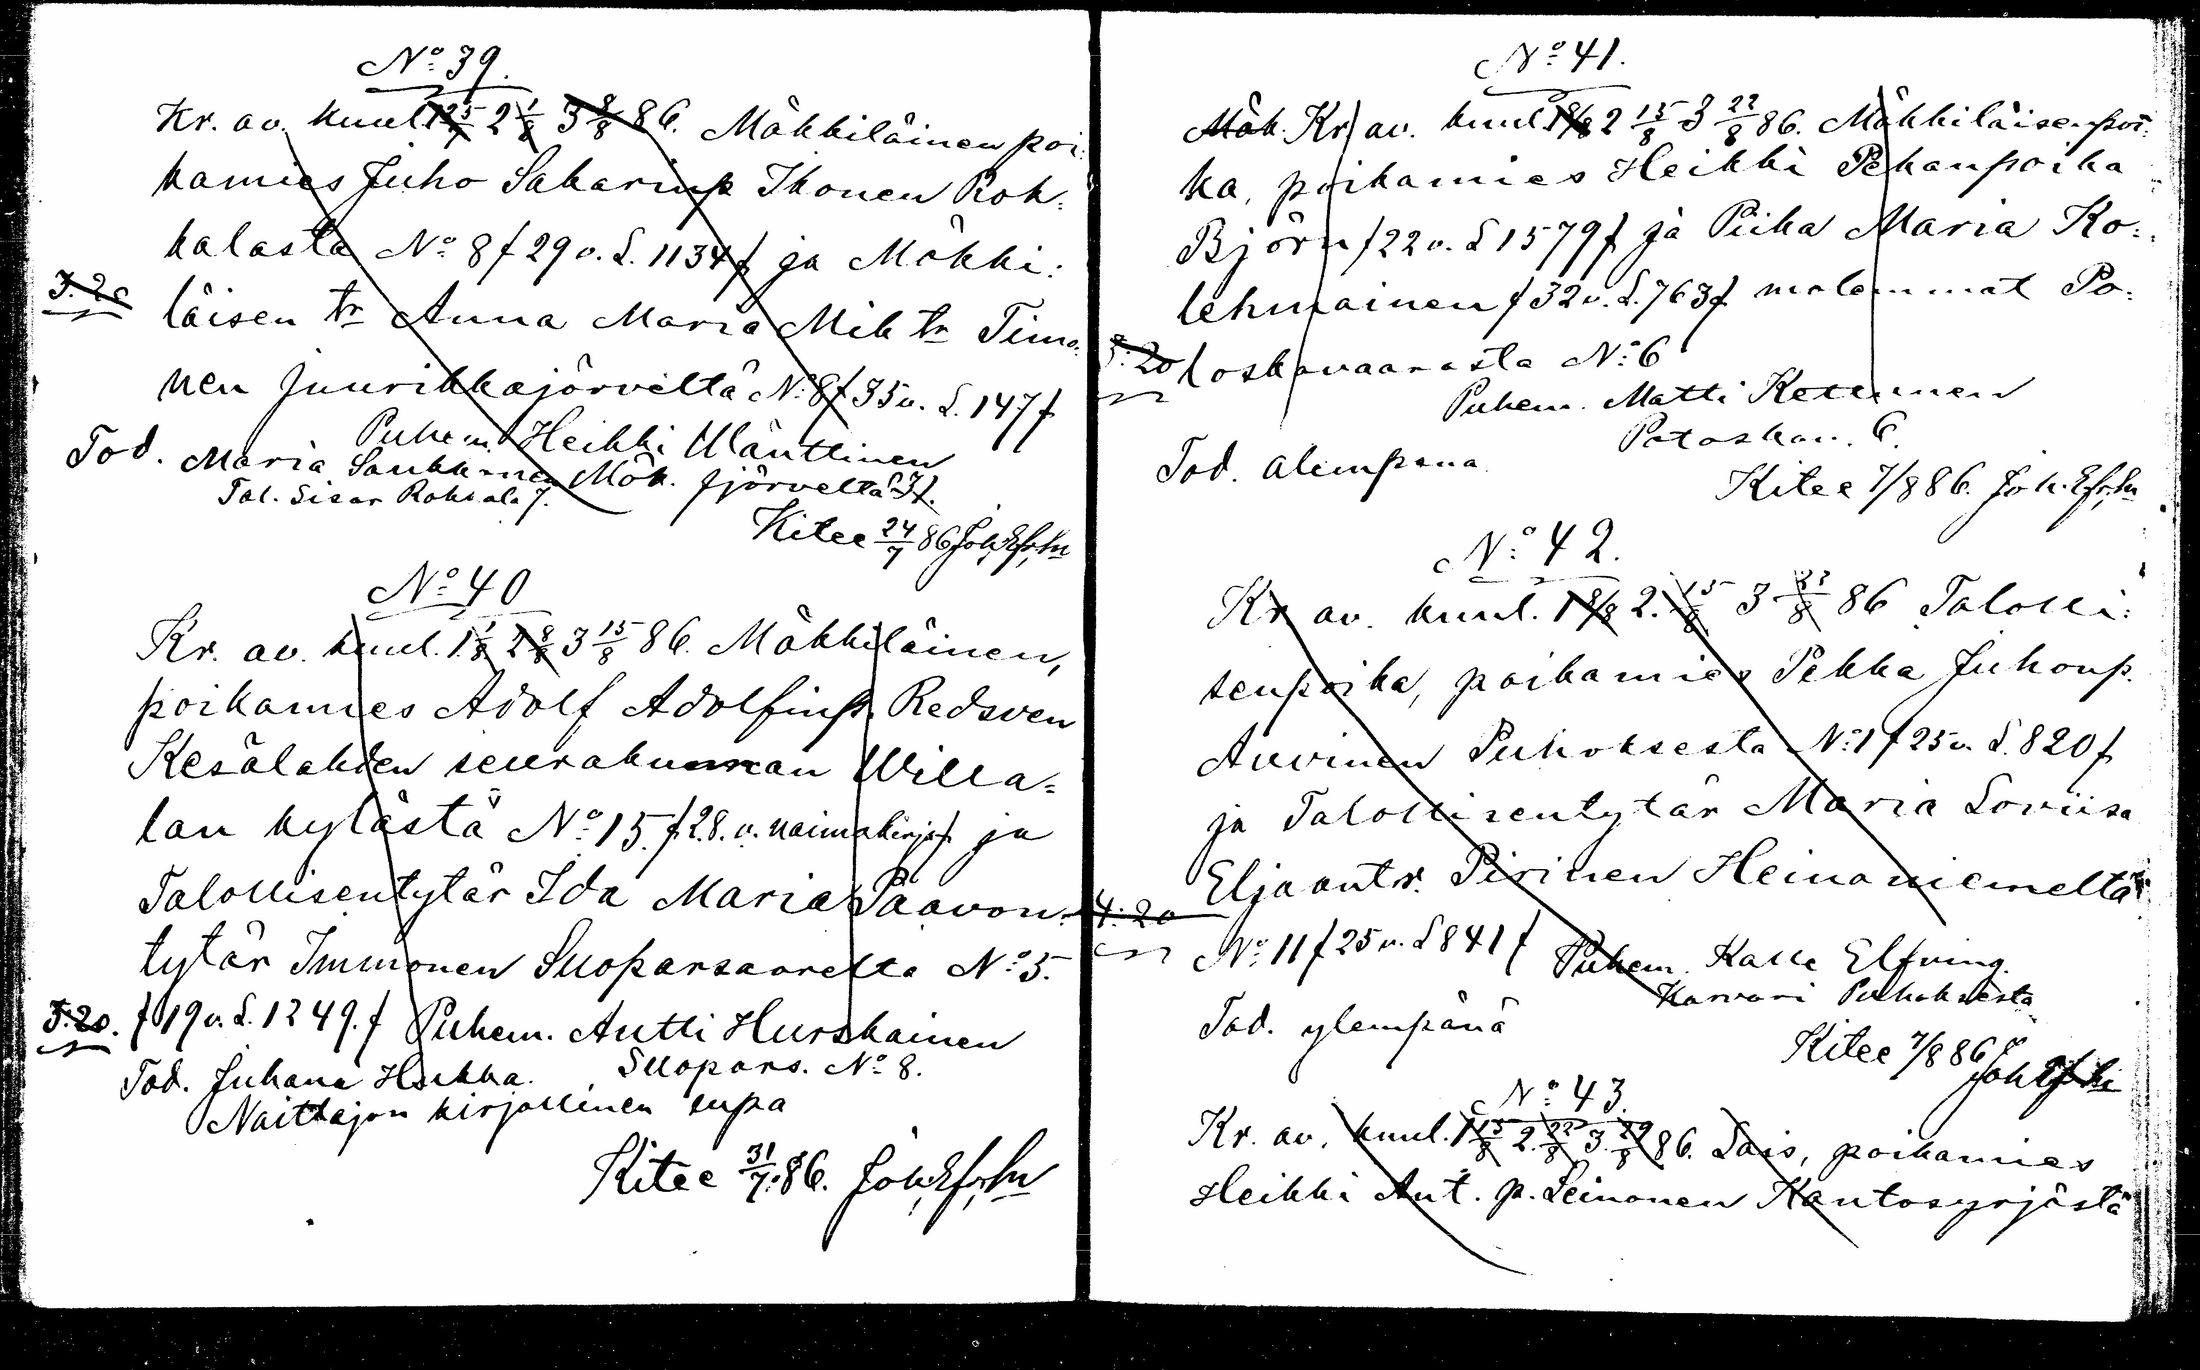 No: 39.
Kr. av. kuul. 1 25/7 2 1/8 3 8/8 86. Mökkiläinen poi:
kamies Juho Sakarinp Ikonen Rok:
kalasta No: 8 f 29 v. L. 1134 f ja Mökki:
3.20
läisen tr Anna Maria Mik tr Timo:
nen Juurikkajärveltä No: 8 f 35 v. L. 147 f
Puhem. Heikki Wänttinen
Tod. Maria Mök. Jjärveltä
Tal. Sisar Rokkala 7.
Kitee 24/7 86 Joh. 
No: 40
Kr. av. kuul. 1 1/8 2 8/8 3 15/8 86. Mökkiläinen,
poikamies Adolf Adolfinp. Redsven
Kesälahden seurakunnan Willa=
lan kylästä No: 15. f 28. v. naimakirja f ja
Talollisentytär Ida Maria Paavon:
tytär Immonen Suoparsaarelta No: 5.
3.20. f 19 v. L. 1249. f Puhem. Antti Hurskainen
Suopars. No: 8.
Tod. Juhana Hukka.
Naittajan kirjallinen lupa
Kitee 31/7 86. Joh. 
No: 41.
Mök. Kr. av. kuul. 1 8/8 2 15/8 3 22/8 86. Mökkiläisenpoi:
ka, poikamies Heikki Pekanpoika
Björn f 22 v. L 1579 f ja Piika Maria Ko:
lehmainen f 32 v. L. 763 f molemmat Po:
3:20 toskavaarasta No: 6
Puhem. Matti Ketunen
Potoskav. 6.
Tod. alempana
Kitee 7/8 86. Joh. 
No: 42.
Kr av. kuul. 1 8/8 2. 15/8 3 22/8 86 Talolli:
senpoika, poikamies Pekka Juhonp.
Auvinen Puhoksesta No: 1 f 25 v. L. 820 f
ja Talollisentytär Maria Loviisa
Eljaantr. Pirinen Heinoniemeltä
4:20
No: 11 f 25 v. L 841 f Puhem. Kalle Elfving.
Karvari Puhoksesta
Tod. ylempänä
Kitee 7/8 86
Joh 
No: 43.
Kr. av. kuul. 1 15/8 2. 22/8 3. 29/8 86. Lois, poikamies
Heikki Ant. p. Leinonen Kantosyrjästä